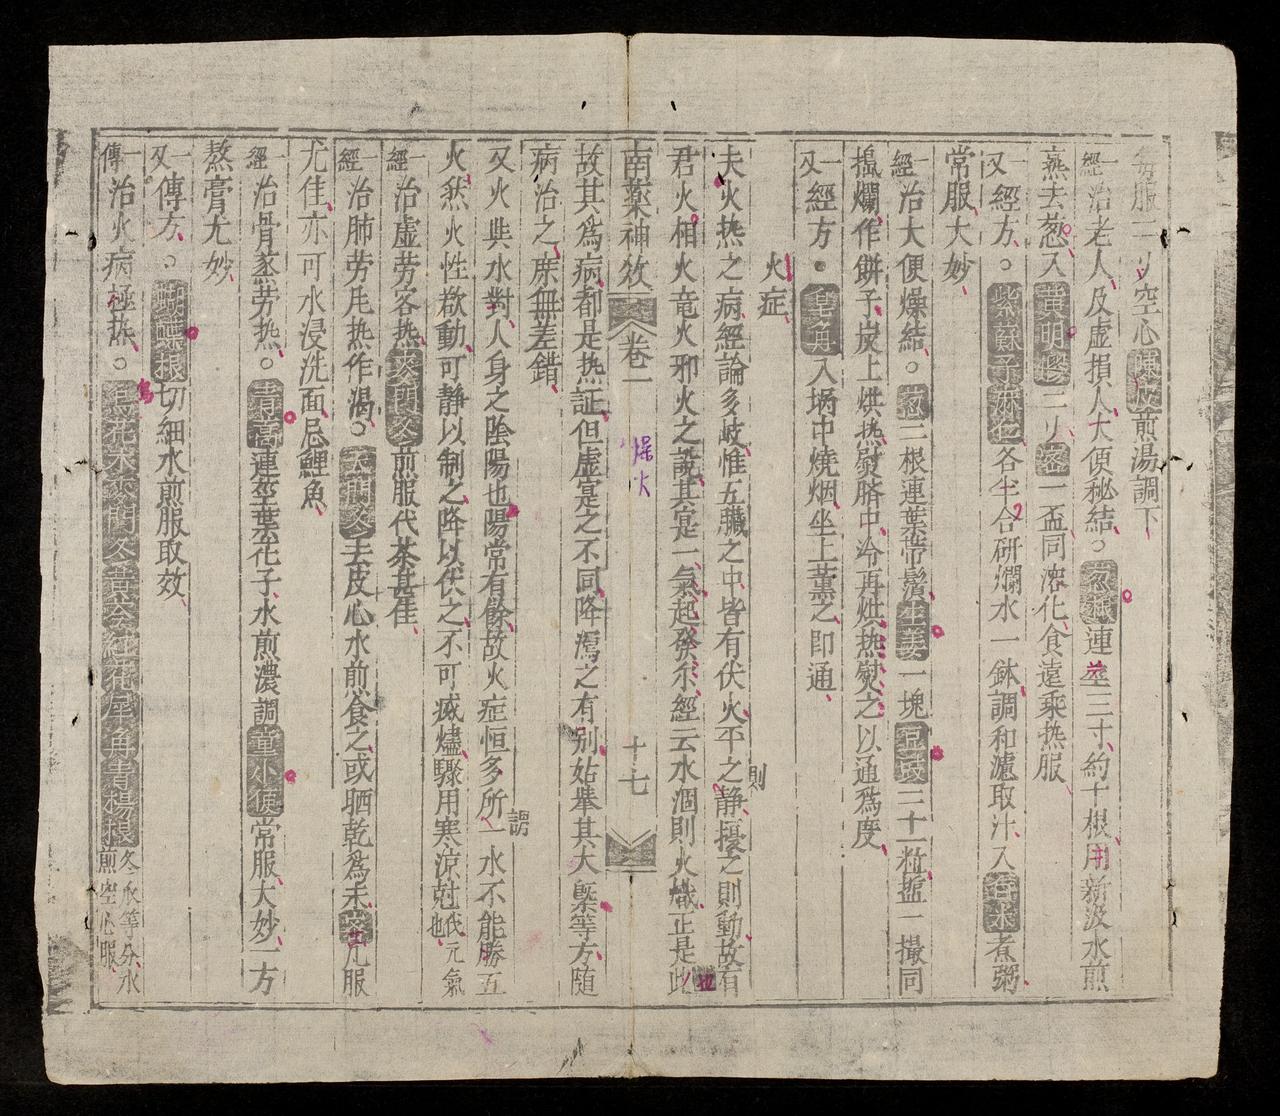 每服二リ空心陳皮煎湯調下
一經治老人及虛損人大便秘結○葱𬞟連莖三寸約十根用新汲水煎
熟去葱入黃明膠二リ密一盃同溶化食遠乘熱服
一又經方○紫蘇子麻仁各半合研爛水一鉢調和濾取汁入香米煮粥
常服大妙
一經治大便燥結○葱三根連葉帶鬚生姜一塊豆豉三十一粒塩一撮同
搗爛作餅子炭上烘热熨臍中冷再烘热熨之以通爲度
一又經方●皂角入堝中燒烟坐上薰之即通
火症
夫火热之病經論多岐惟五臟之中皆有伏火平之則靜擾之則動故有
君火相火竜火邪火之說其寔一氣起發尔經云水涸則火熾正是此也
南藥神效 卷一 燥火 十七
故其爲病都是热証但虛寔之不同降瀉之有别姑舉其大槩等方随
病治之庶無差錯
又火與水對人身之陰陽也陽常有餘故火症恒多所謂一水不能勝五
火然火性欲動可靜以制之降以伏之不可戚燼驟用寒涼尅氐元氣也
一經治虛劳客热麥門冬煎服代茶甚佳
一經治肺劳凡热作渴○天門冬去皮心水煎食之或晒乾爲末密丸服
尤佳亦可水浸洗面忌鯉魚
一經治骨蒸劳热○青蒿連莖葉花子水煎濃調童小便常服大妙一方
熬膏尤妙
一又傳方○蝴蝶根切細水煎服取效
一傳治火病極热○爲花木麥門冬黃芩紅花犀角青楊根各水等分水煎空心服